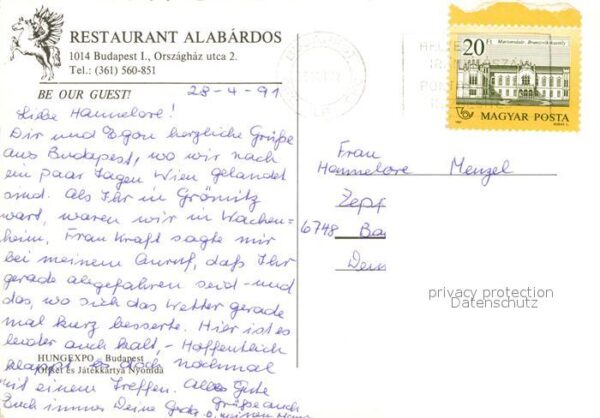 RESTAURANT ALABÁRDOS
1014 Budapest I., Országház utca 2.
Tel.: (361) 560-851
BE OUR GUEST!
28-4-91
Liebe Hannelore!
Dir und Egon herzliche Grüße
aus Budapest, wo wir nach
ein paar Tagen Wien gelandet
sind. Als Ihr in Grömitz
wart, waren wir in Wachen=
heim, Frau Kraft sagte mir
bei meinem Anruf, daß Ihr
gerade abgefahren seid - und
das, wo sich das Wetter gerade
mal kurz besserte. Hier ist es
leider auch kalt, - Hoffentlich
klappt es doch nochmal
mit einem Treffen. Alles Gute
Euch immer Deine
Grüße auch
HUNGEXPO – Budapest
Offset és Játékkártya Nyomda
20 Ft
MAGYAR POSTA
Frau
Hannelore Menzel
Zepp
6748 Ba
Deu
privacy protection
Datenschutz